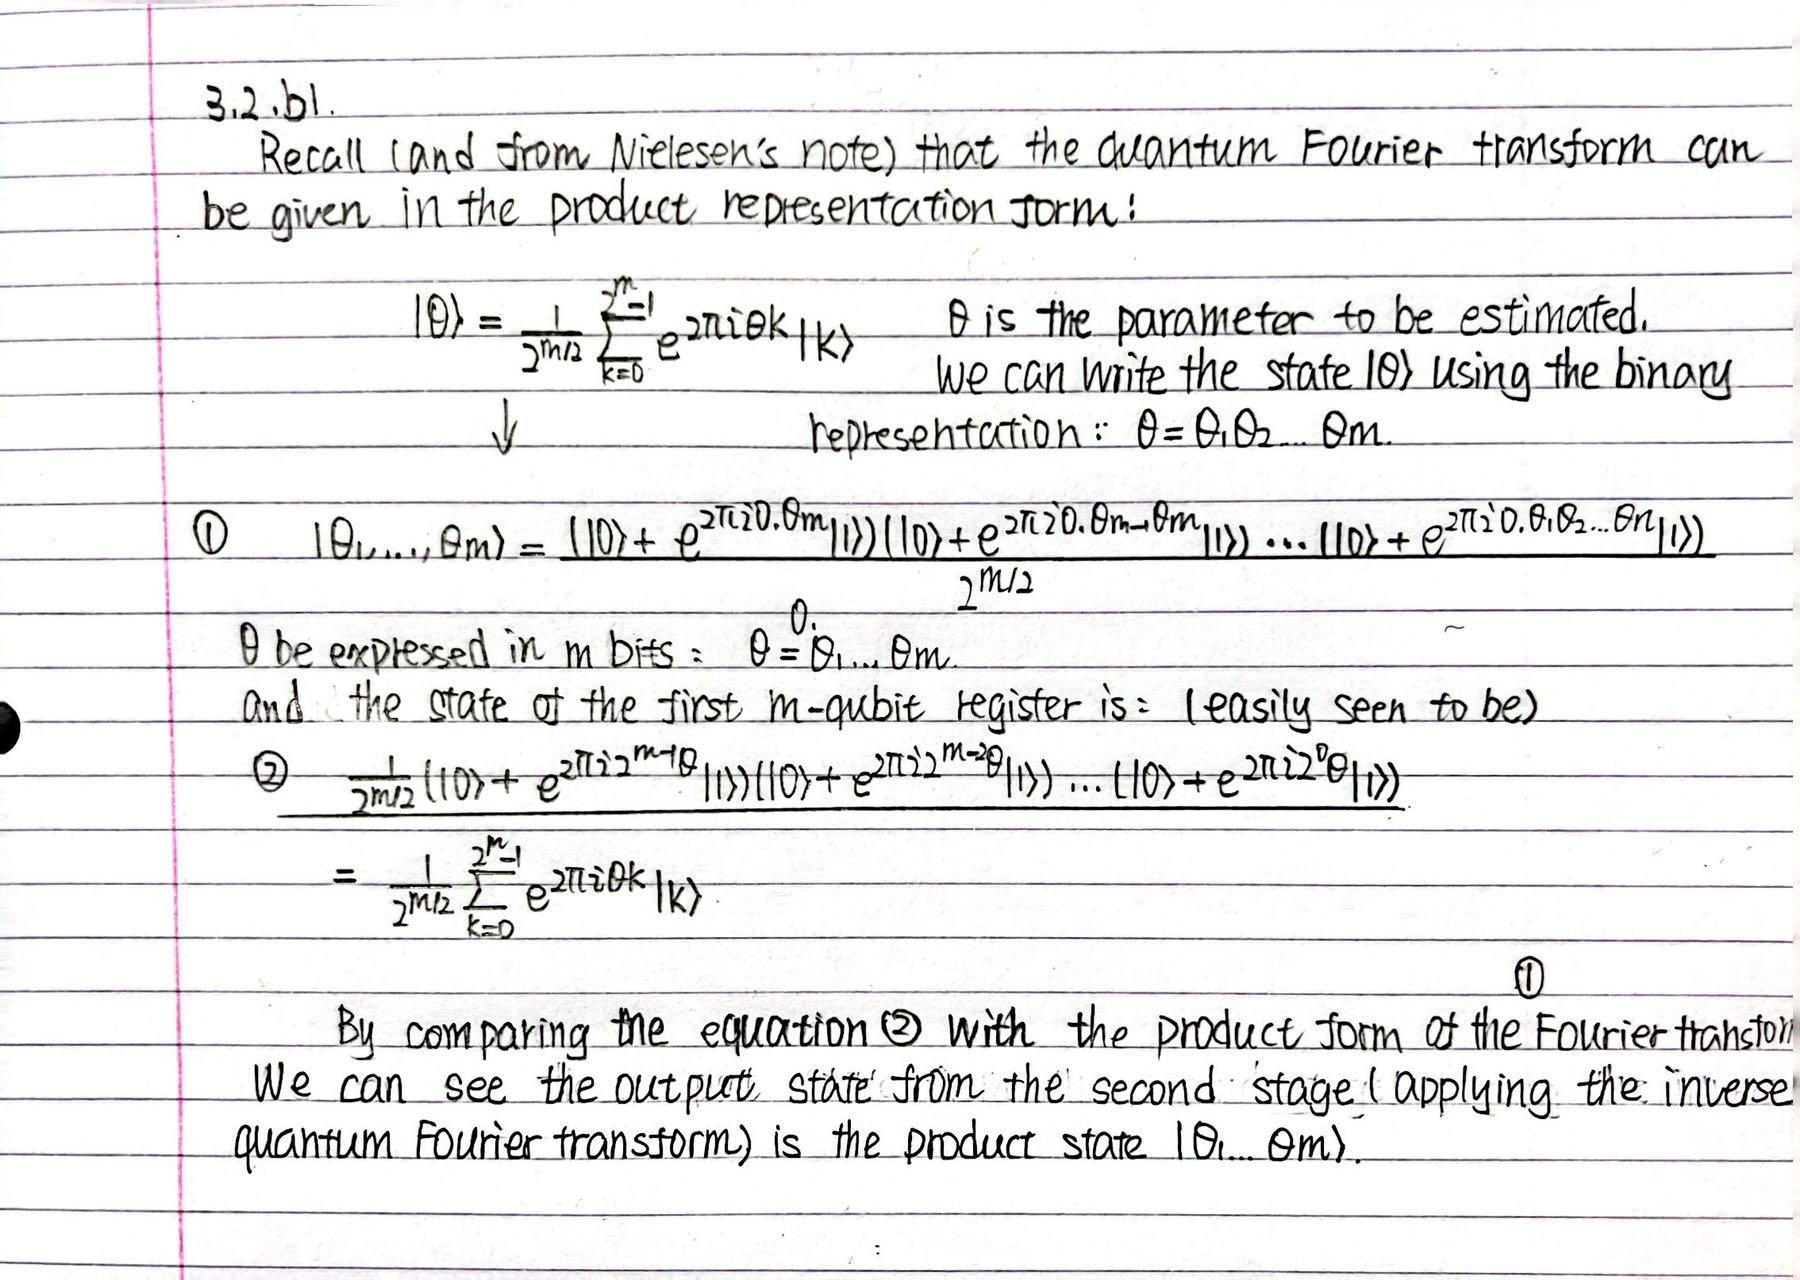 3.2.b1.
Recall (and from Nielesen's note) that the quantum Fourier transform can
be given in the product representation form:
|θ⟩ = 1/2^{m/2} Σ_{k=0}^{2^m-1} e^{2πiθk} |k⟩   θ is the parameter to be estimated.
we can write the state |θ⟩ using the binary
↓ representation: θ = θ₁θ₂... θm.
① |θ₁,..., θm⟩ = (|0⟩ + e^{2πi0.θm}|1⟩)(|0⟩ + e^{2πi0.θm-1θm}|1⟩) ... (|0⟩ + e^{2πi0.θ₁θ₂...θn}|1⟩) / 2^{m/2}
θ be expressed in m bits: θ = 0.θ₁... θm.
and the state of the first m-qubit register is: (easily seen to be)
② 1/2^{m/2} (|0⟩ + e^{2πi2^{m-1}θ}|1⟩)(|0⟩ + e^{2πi2^{m-2}θ}|1⟩) ... (|0⟩ + e^{2πi2^0θ}|1⟩)
= 1/2^{m/2} Σ_{k=0}^{2^m-1} e^{2πiθk} |k⟩.
①
By comparing the equation ② with the product form of the Fourier transfor
We can see the output state from the second stage (applying the inverse
quantum Fourier transform) is the product state |θ₁... θm⟩.